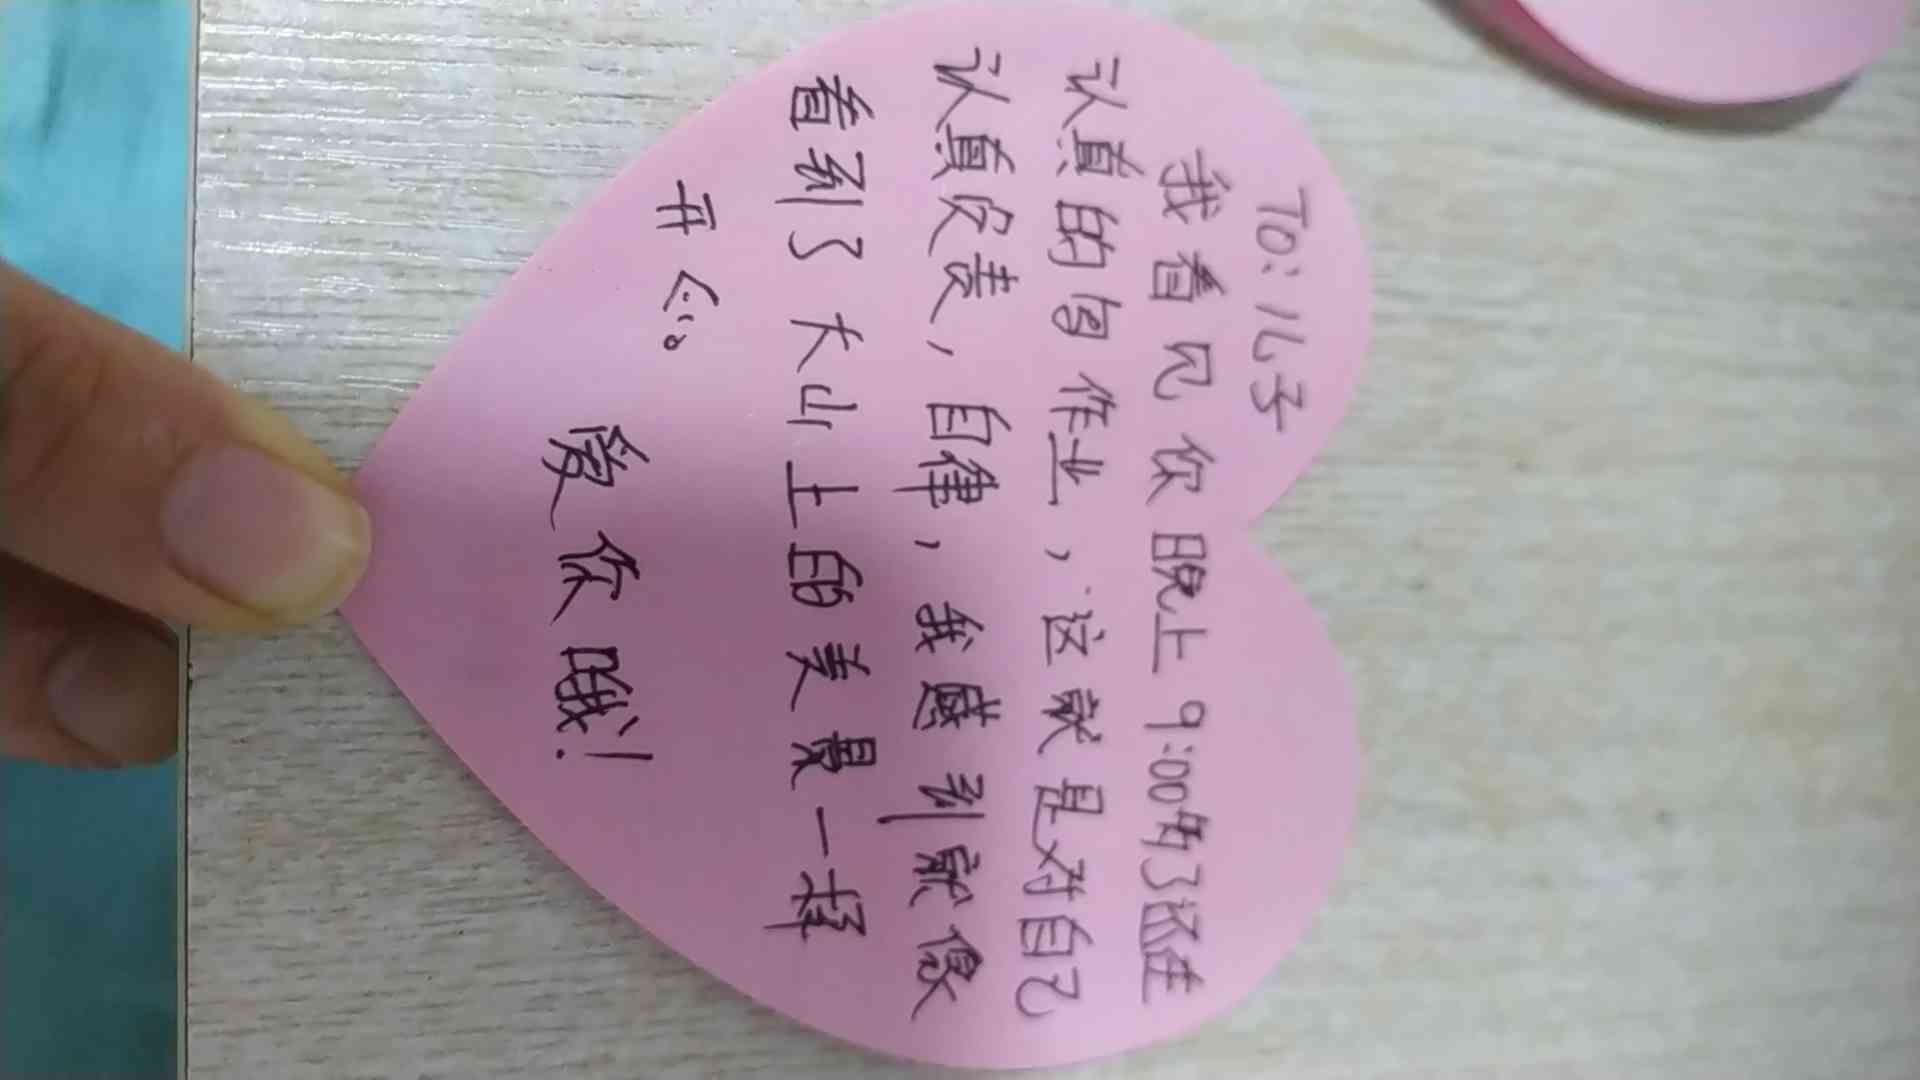 TO:儿子
我看见你晚上9:00多了还在
认真的写作业,这就是对自己
认真负责,自律,我感到就像
看到了大山上的美景一样
开心。
爱你哦!